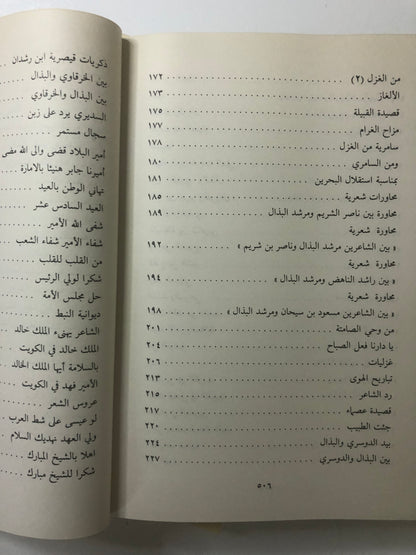 من الغزل (٢) ١٧٢
الألغاز ١٧٣
قصيدة القبيلة ١٧٥
مزاح الغرام ١٧٧
سامرية من الغزل ١٧٨
ومن السامري ١٨٠
بمناسبة استقلال البحرين ١٨١
محاورات شعرية ١٨٥
محاورة بين ناصر الشريم ومرشد البذال ١٨٩
محاورة شعرية
« بين الشاعرين مرشد البذال وناصر بن شريم » ١٩٢
محاورة شعرية
« بين راشد الناهض ومرشد البذال » ١٩٤
محاورة شعرية
« بين الشاعرين مسعود بن سيحان ومرشد البذال » ١٩٨
من وحي الصامتة ٢٠١
يا دارنا فعل الصباح ٢٠٤
غزليات ٢٠٦
تباريح الهوى ٢١٣
رد الشاعر ٢١٥
قصيدة عصماء ٢١٧
جئت الطبيب ٢٢٠
بيد الدوسري والبذال ٢٢٤
بين البذال والدوسري ٢٢٧
٥٠٦
ذكريات قيصرية ابن رشدان
بين الخرقاوي والبذال
بين البذال والخرقاوي
السديري يرد على زبن
سجال مستمر
أمير البلاد قضى والى الله مضى
أميرنا جابر هنيئا بالامارة
تهاني الوطن بالعيد
العيد السادس عشر
شفى الله الأمير
شفاء الأمير شفاء الشعب
من القلب للقلب
شكرا لولي الرئيس
حل مجلس الأمة
ديوانية النبط
الشاعر يهنىء الملك خالد
الملك خالد في الكويت
بالسلامة أيها الملك الخالد
الأمير فهد في الكويت
عروس الشعر
لو عيسى على شط العرب
ولي العهد نهديك السلام
اهلا بالشيخ المبارك
شكرا للشيخ مبارك